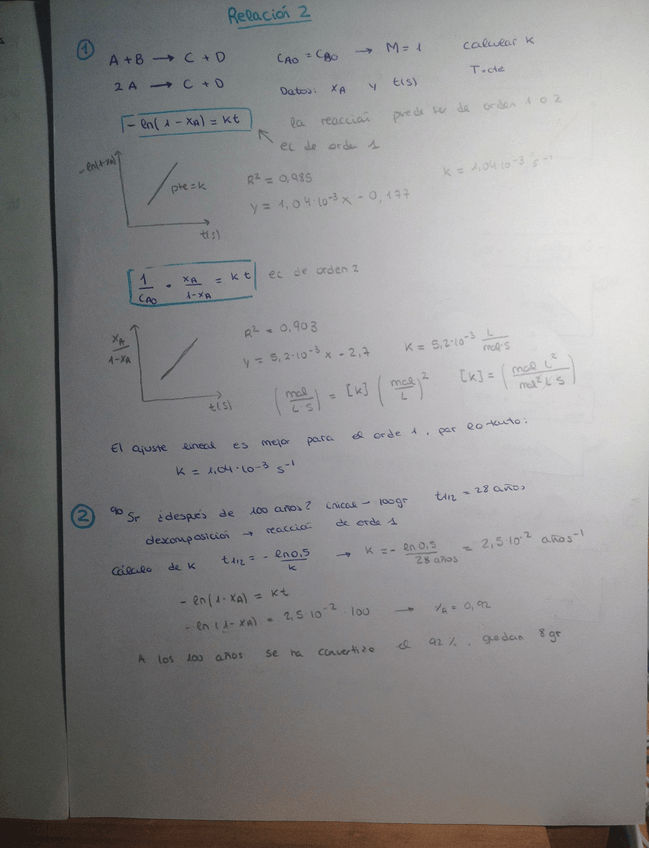 Relación 2
① A + B → C + D    CA0 = CB0 → M = 1    calcular k
2A → C + D    Datos: xA y t(s)    T=cte
-ln(1-xA) = kt    la reacción puede ser de orden 1 o 2
ec de orden 1
-ln(1-xA)    pte=k    t(s)
R² = 0,985    k = 1,04·10⁻³ s⁻¹
y = 1,04·10⁻³x - 0,177
1/CA0 · xA/(1-xA) = kt    ec de orden 2
xA/(1-xA)    t(s)
R² = 0,903
y = 5,2·10⁻³x - 2,7    K = 5,2·10⁻³ L/mol·s
(mol/L·s) = [k] (mol/L)²    [k] = (mol L²/mol² L s)
El ajuste lineal es mejor para el orde 1, por lo tanto:
K = 1,04·10⁻³ s⁻¹
② ⁹⁰Sr ¿después de 100 años? inicial - 100gr    t1/2 = 28 años
descomposición → reacción de orde 1
Cálculo de K    t1/2 = - ln0,5/k → K = - ln0,5/28 años = 2,5·10⁻² años⁻¹
-ln(1-xA) = kt
-ln(1-xA) = 2,5·10⁻² · 100 → xA = 0,92
A los 100 años se ha convertido el 92%, quedan 8gr